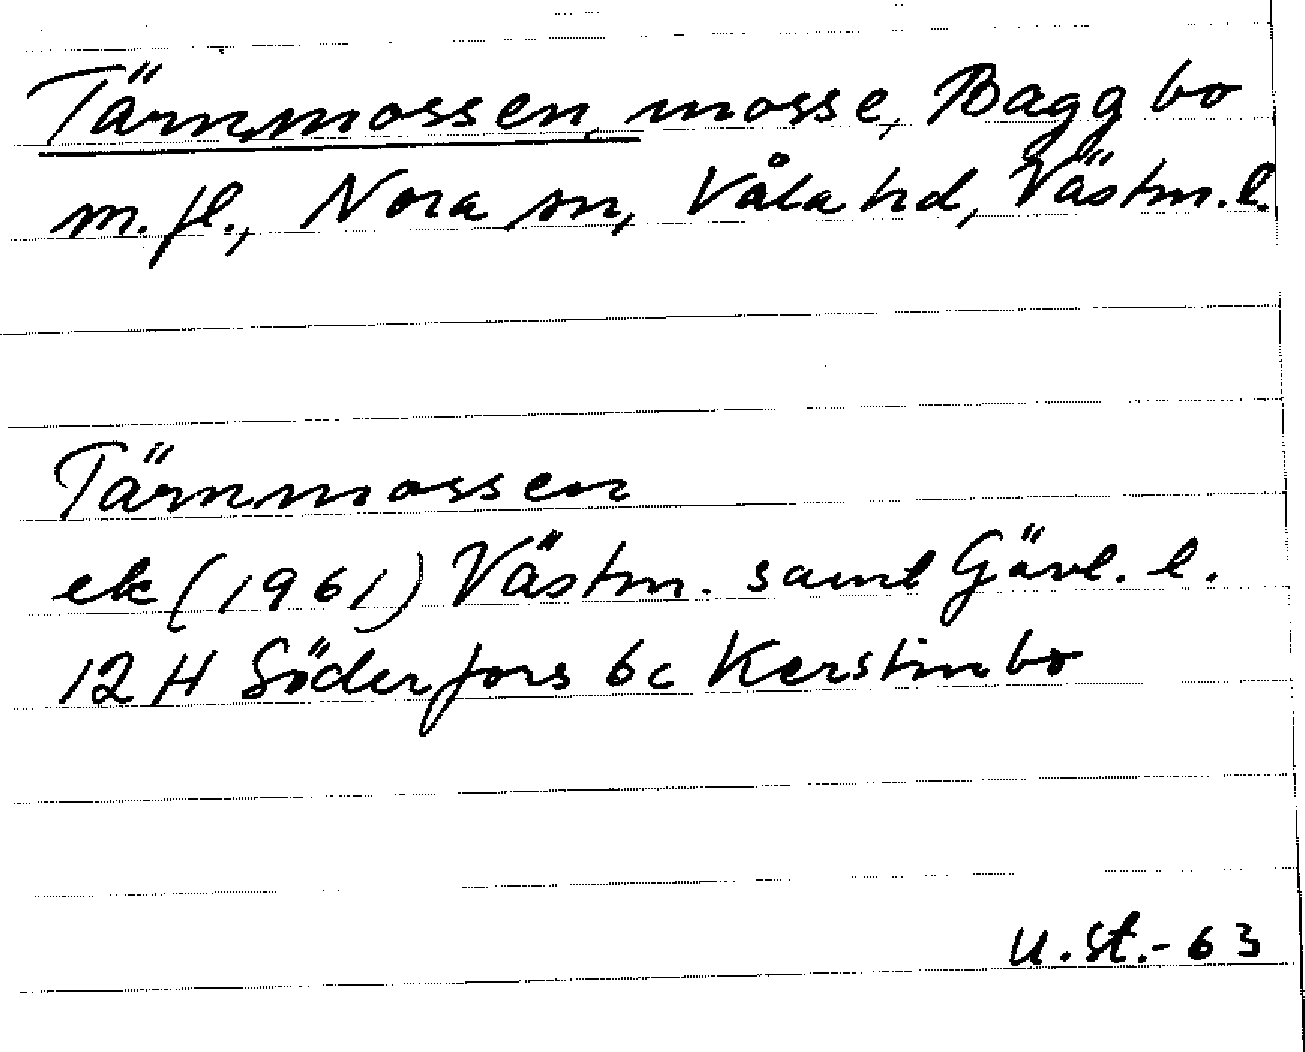 Tärnmossen, mosse, Baggbo
m.fl., Nora sn, Våla hd, Västm.l.
Tärnmossen
ek (1961) Västm. samt Gävl. l.
12 H Söderfors 6c Kerstinbo
U.St.-63